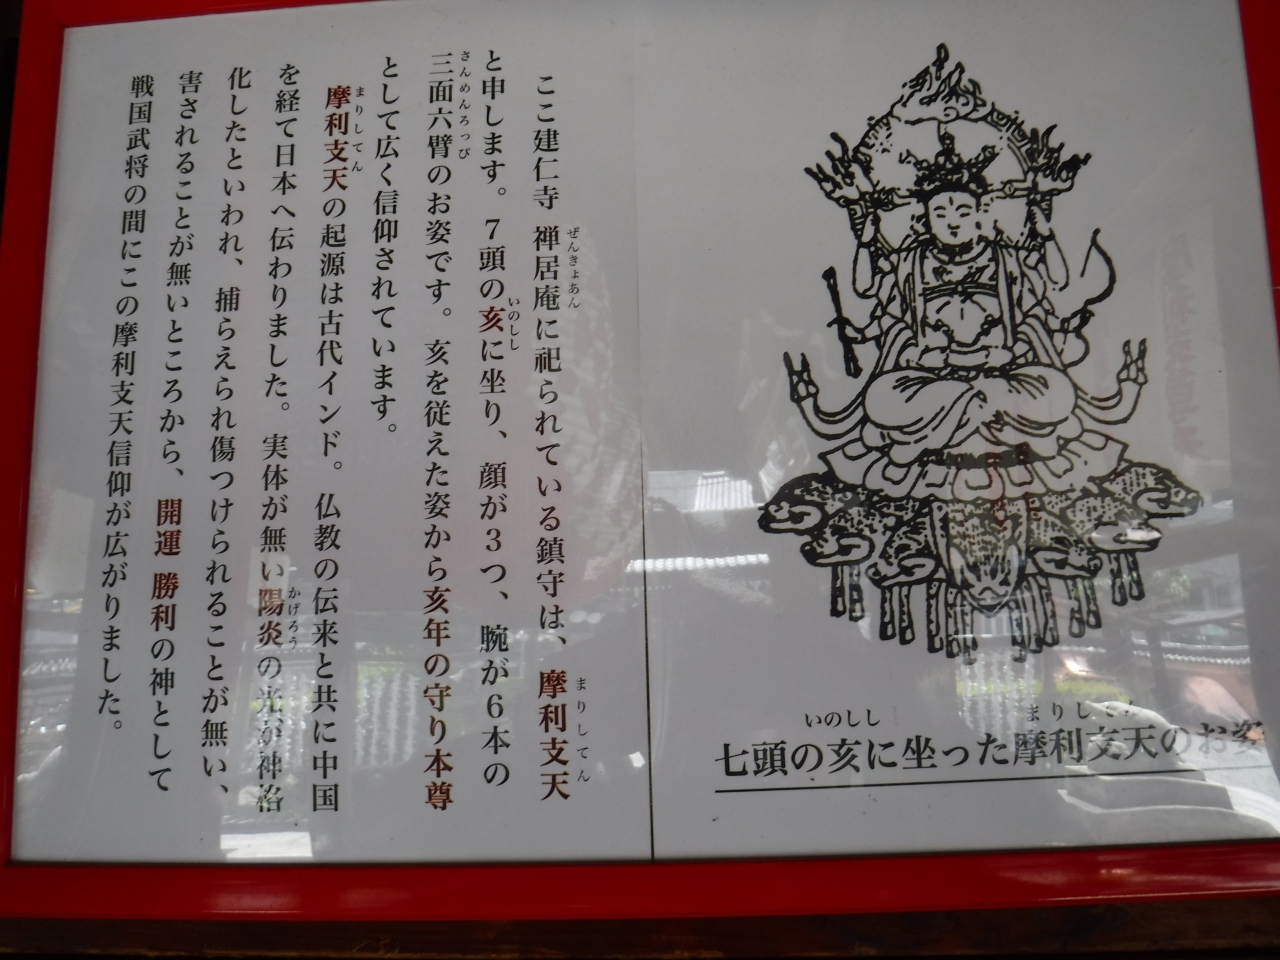 ここ建仁寺 禅居庵に祀られている鎮守は、摩利支天
ぜんきょあん
まりしてん
と申します。7頭の亥に坐り、顔が3つ、腕が6本の
いのしし
三面六臂のお姿です。亥を従えた姿から亥年の守り本尊
さんめんろっぴ
として広く信仰されています。
摩利支天の起源は古代インド。仏教の伝来と共に中国
まりしてん
を経て日本へ伝わりました。実体が無い陽炎の光が神格
かげろう
化したといわれ、捕らえられ傷つけられることが無い、
害されることが無いところから、開運 勝利の神として
戦国武将の間にこの摩利支天信仰が広がりました。
いのしし
まりしてん
七頭の亥に坐った摩利支天のお姿